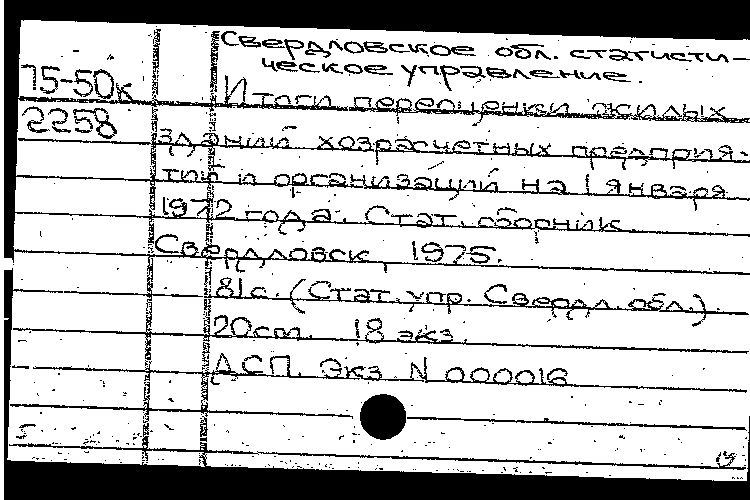 Свердловское обл. статисти-
ческое управление.
75-50к Итоги переоценки жилых
2258 зданий хозрасчетных предприя-
тий и организаций на 1 января
1972 года. Стат. сборник.
Свердловск, 1975.
81с. (Стат. упр. Свердл. обл.)
20см. 18 экз.
ДСП. Экз. N 000016